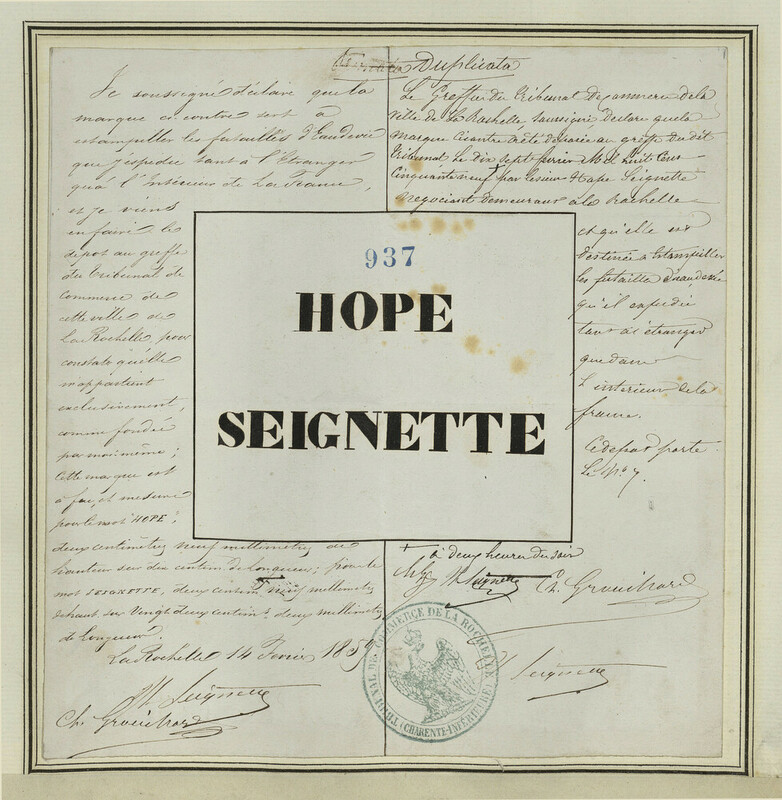 Je soussigné déclare que la
marque ci contre sert à
estampiller les futailles d'Eaudevie
que j'expédie tant à l'Etranger
qu'à l'Intérieur de La France,
et je viens
en faire le
depot au greffe
du tribunal de
Commerce de
cette ville de
La Rochelle, pour
constater qu'elle
m'appartient
exclusivement,
comme fondée
par moi même;
Cette marque est
à feu, et mesure
pour le mot HOPE;
deux centimètres neuf millimètres de
hauteur sur dix centim. de Longueur; pour le
mot SEIGNETTE, deux centim. neuf millimètres
de haut sur Vingt deux centim. deux millimètres
de Longueur.
La Rochelle 14 Fevrier 1859
H Seignette
Ch. Grouihard
Duplicata
Le Greffier du tribunal de commerce de la
ville de La Rochelle soussigné declare que la
marque ci contre a été déposée au greffe du dit
tribunal le dix sept fevrier Mil huit Cent
Cinquante neuf par le sieur Hope Seignette
negociant demeurant à la Rochelle
et qu'elle est
destinée a Estampiller
les futailles d'eaudevie
qu'il expedie
tant à l'étranger
que dans
l'interieur de la
france.
Ce depot porte
Le N° 7.
à deux heures du soir
H Seignette
Ch. Grouihard
H Seignette
937
HOPE
SEIGNETTE
TRIBUNAL DE COMMERCE DE LA ROCHELLE
(CHARENTE-INFERIEURE)